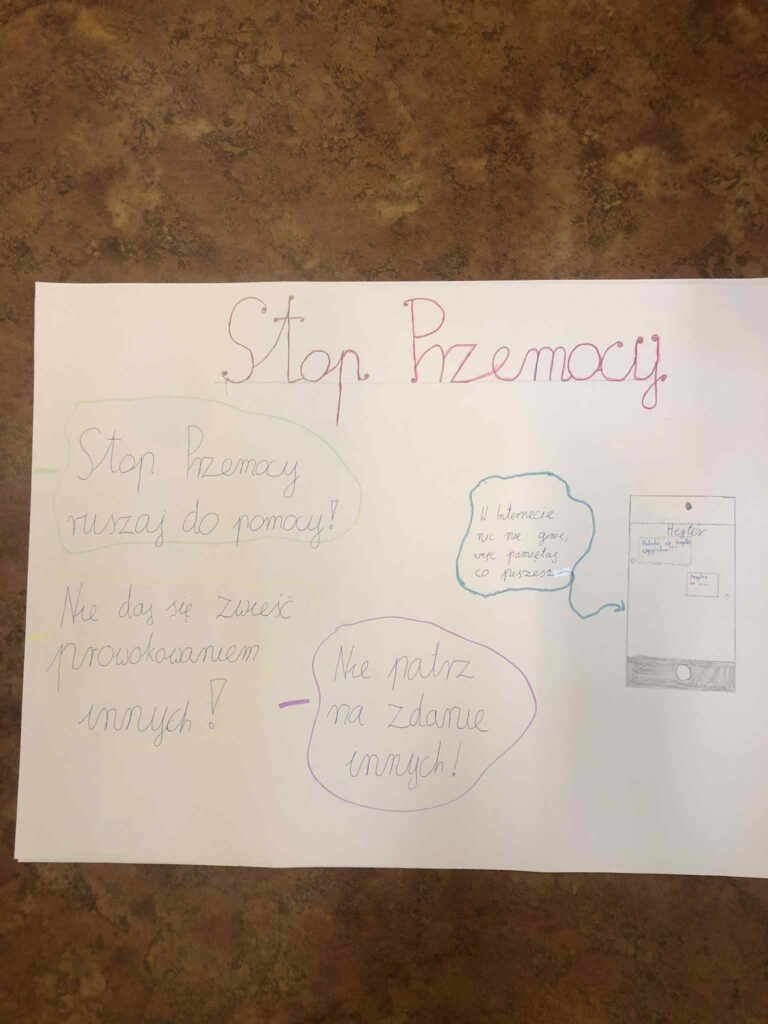 Stop Przemocy
Stop Przemocy
ruszaj do pomocy!
Nie daj się zwieść
prowokowaniem
innych!
Nie patrz
na zdanie
innych!
W Internecie
nic nie ginie,
więc pamiętaj
co piszesz
Hejter